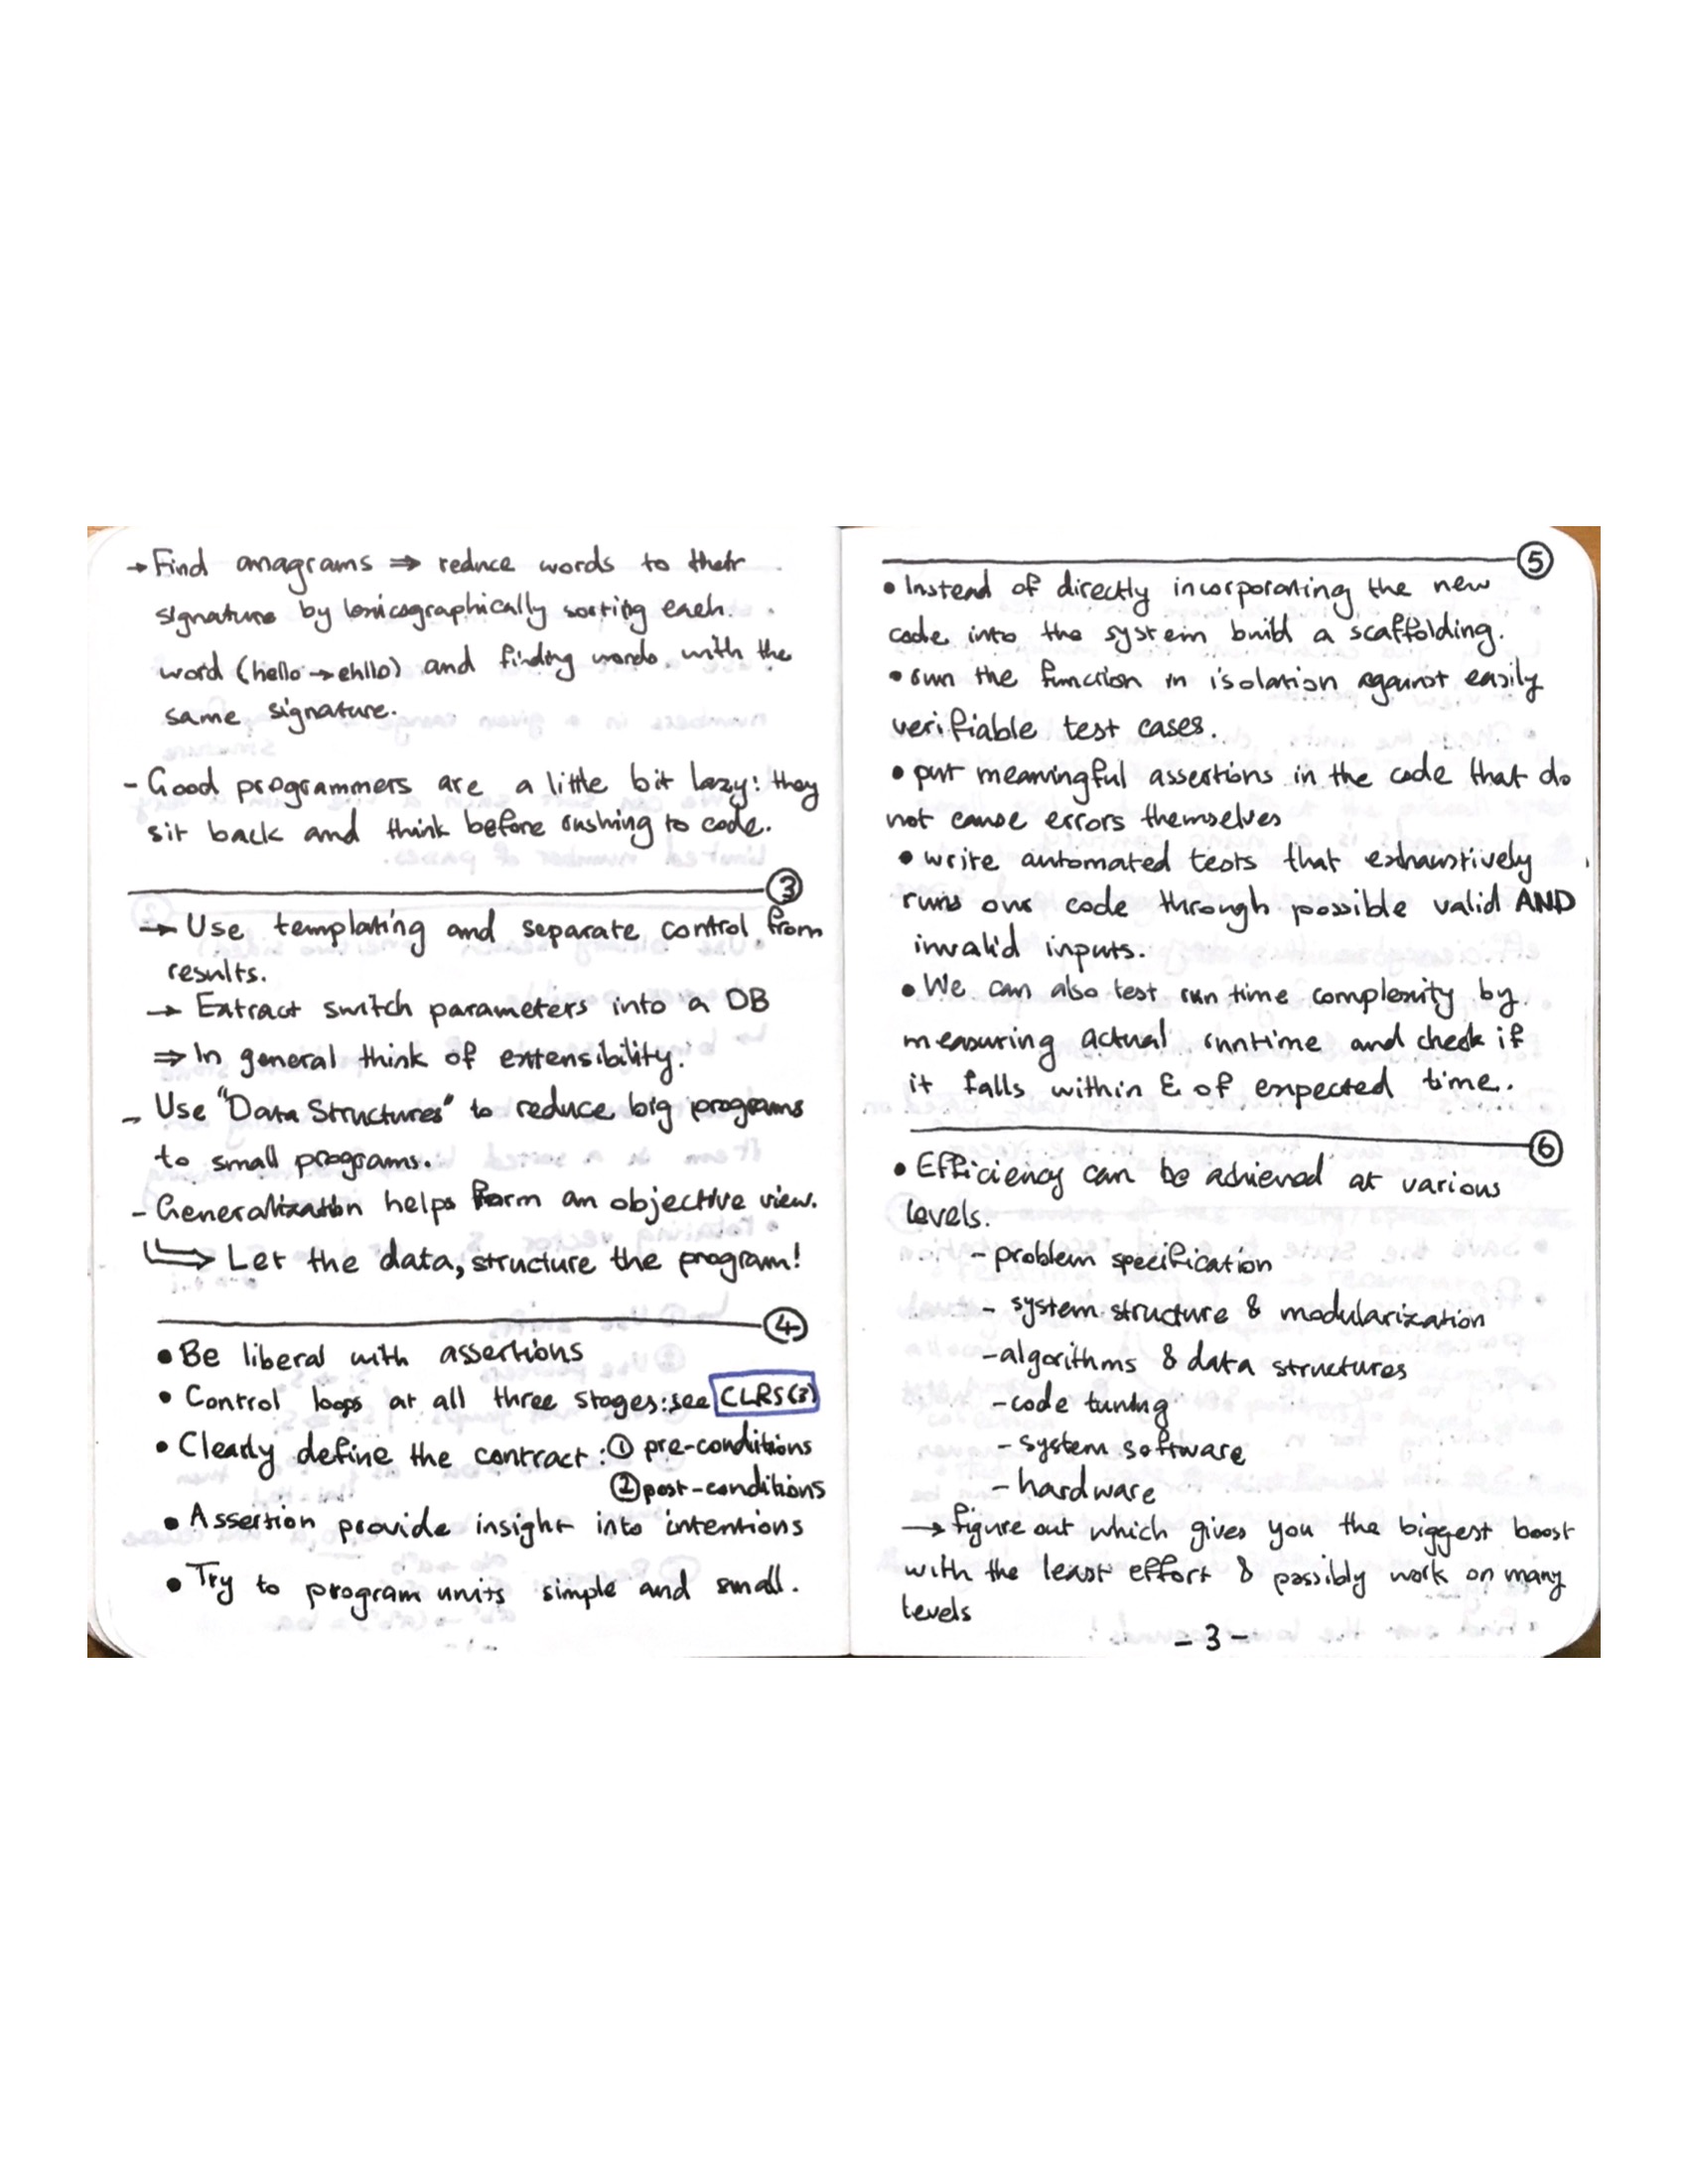 → Find anagrams ⇒ reduce words to their
signature by lexicographically sorting each
word (hello → ehllo) and finding words with the
same signature.
- Good programmers are a little bit lazy: they
sit back and think before rushing to code.
③
→ Use templating and separate control from
results.
→ Extract switch parameters into a DB
⇒ In general think of extensibility.
- Use "Data Structures" to reduce big programs
to small programs.
- Generalization helps form an objective view.
↳ Let the data, structure the program!
④
• Be liberal with assertions
• Control loops at all three stages: see CLRS(3)
• Clearly define the contract: ① pre-conditions
② post-conditions
• Assertion provide insight into intentions
• Try to program units simple and small.
⑤
• Instead of directly incorporating the new
code into the system build a scaffolding.
• run the function in isolation against easily
verifiable test cases.
• put meaningful assertions in the code that do
not cause errors themselves
• write automated tests that exhaustively
runs our code through possible valid AND
invalid inputs.
• We can also test run time complexity by
measuring actual runtime and check if
it falls within ε of expected time.
⑥
• Efficiency can be achieved at various
levels.
- problem specification
- system structure & modularization
- algorithms & data structures
- code tuning
- system software
- hardware
→ figure out which gives you the biggest boost
with the least effort & possibly work on many
levels
- 3 -